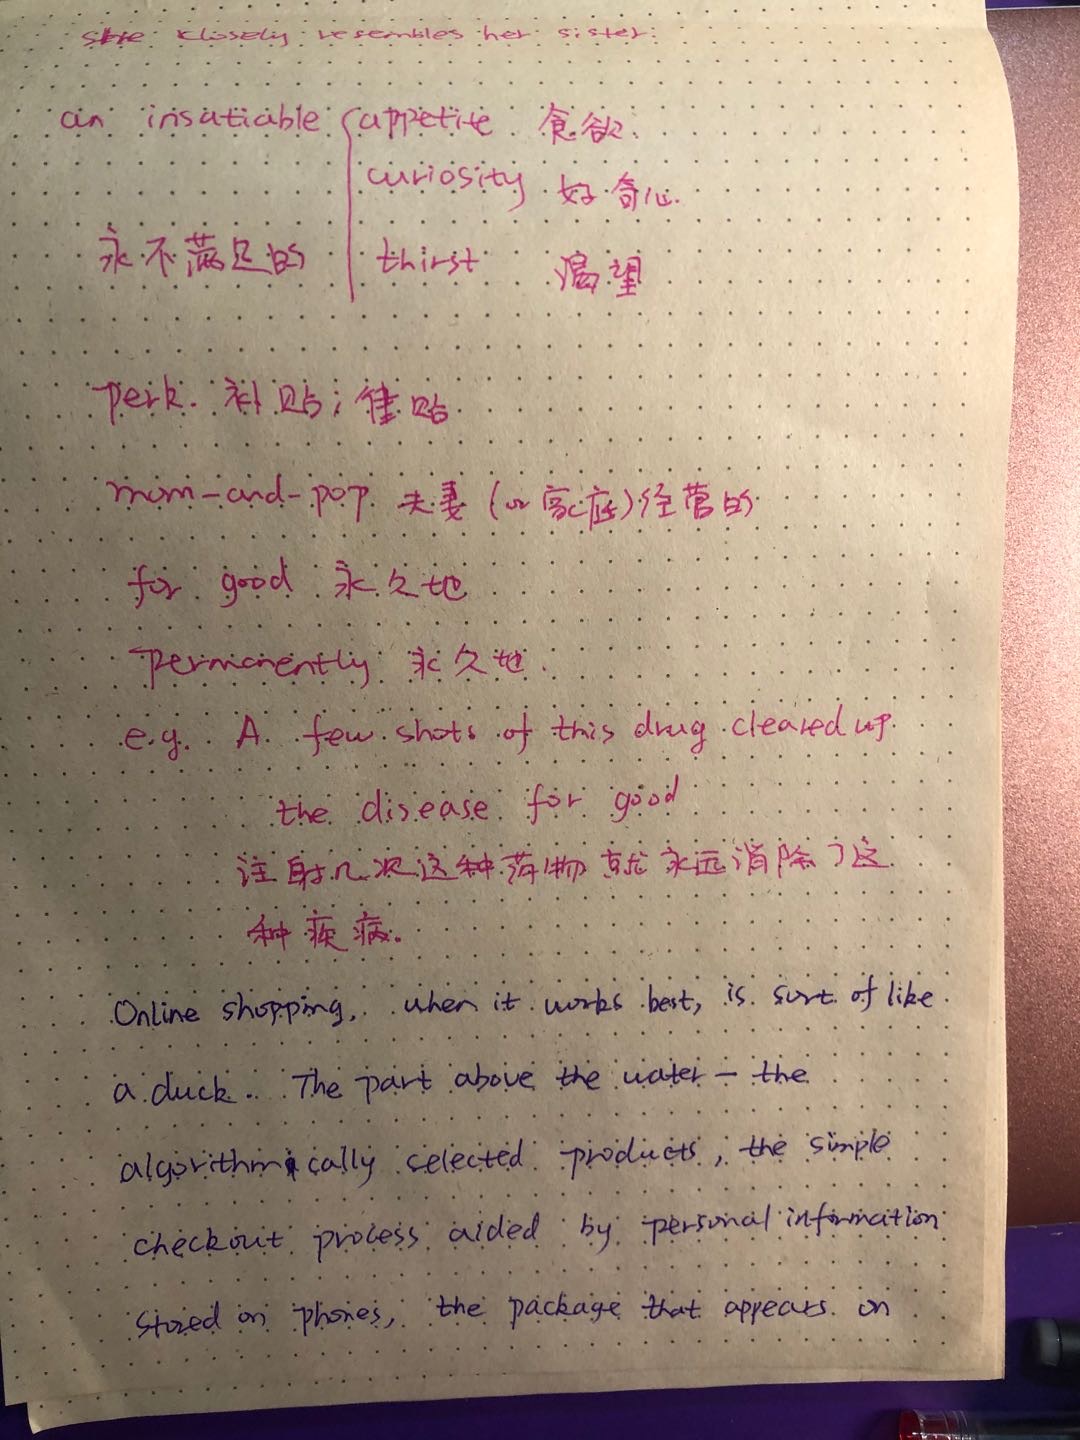 she closely resembles her sister.
an insatiable { appetite 食欲.
curiosity 好奇心.
永不满足的 thirst 渴望
perk. 补贴; 津贴
mom-and-pop 夫妻(or家庭)经营的
for good 永久地
permanently 永久地.
e.g. A few shots of this drug cleared up
the disease for good
注射几次这种药物就永远消除了这
种疾病。
Online shopping, when it works best, is sort of like
a duck. The part above the water – the
algorithmically selected products, the simple
checkout process aided by personal information
stored on phones, the package that appears on